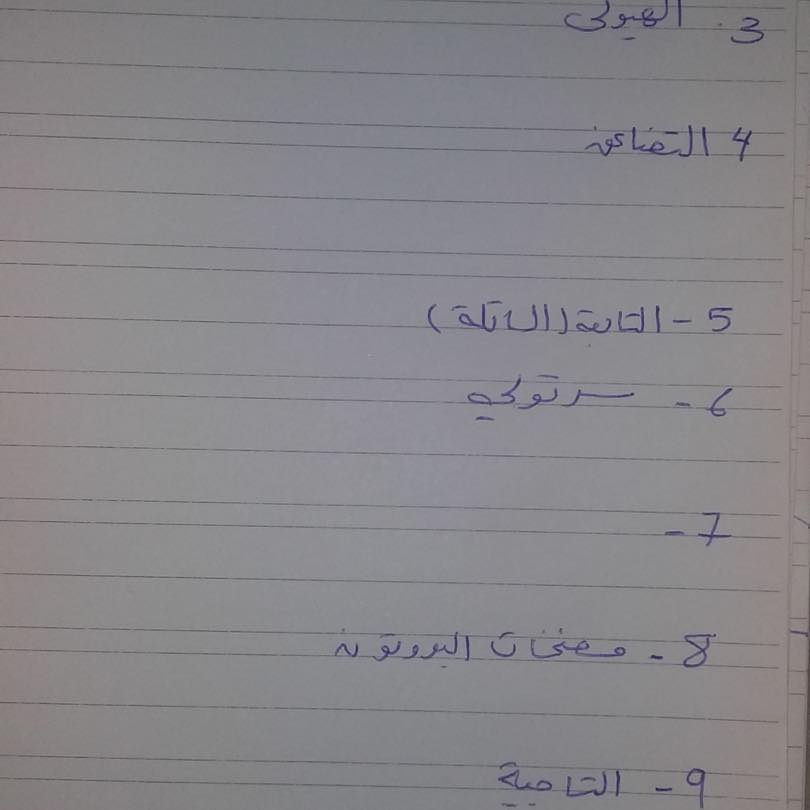 3. الهيولى
4 التضاعف
5 - الثابتة (الدالة)
6 - سرتوكي
7 -
8 - مضخات البروتون
9 - التاجية